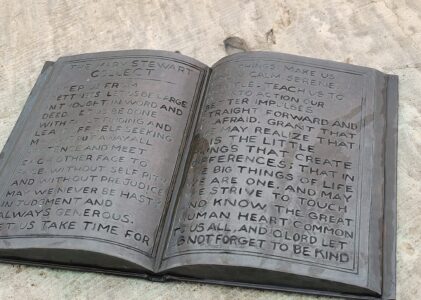 THE MARY STEWART
COLLECT
KEEP US FROM
PETTINESS: LET US BE LARGE
IN THOUGHT, IN WORD AND
DEED. LET US BE DONE
WITH FAULT-FINDING AND
LEAVE OFF SELF-SEEKING
AWAY ALL
PRETENCE AND MEET
EACH OTHER FACE TO
FACE. WITHOUT SELF PITY
AND WITHOUT PREJUDICE
MAY WE NEVER BE HASTY
IN JUDGMENT AND
ALWAYS GENEROUS.
LET US TAKE TIME FOR
THINGS, MAKE US
CALM SERENE
GENTLE. TEACH US TO
TO ACTION OUR
BETTER IMPULSES
STRAIGHT FORWARD, AND
UNAFRAID. GRANT THAT
WE MAY REALIZE THAT
IT IS THE LITTLE
THINGS THAT CREATE
DIFFERENCES; THAT IN
THE BIG THINGS OF LIFE
WE ARE ONE. AND MAY
WE STRIVE TO TOUCH
AND KNOW THE GREAT
HUMAN HEART COMMON
TO US ALL, AND, O LORD LET
US NOT FORGET TO BE KIND